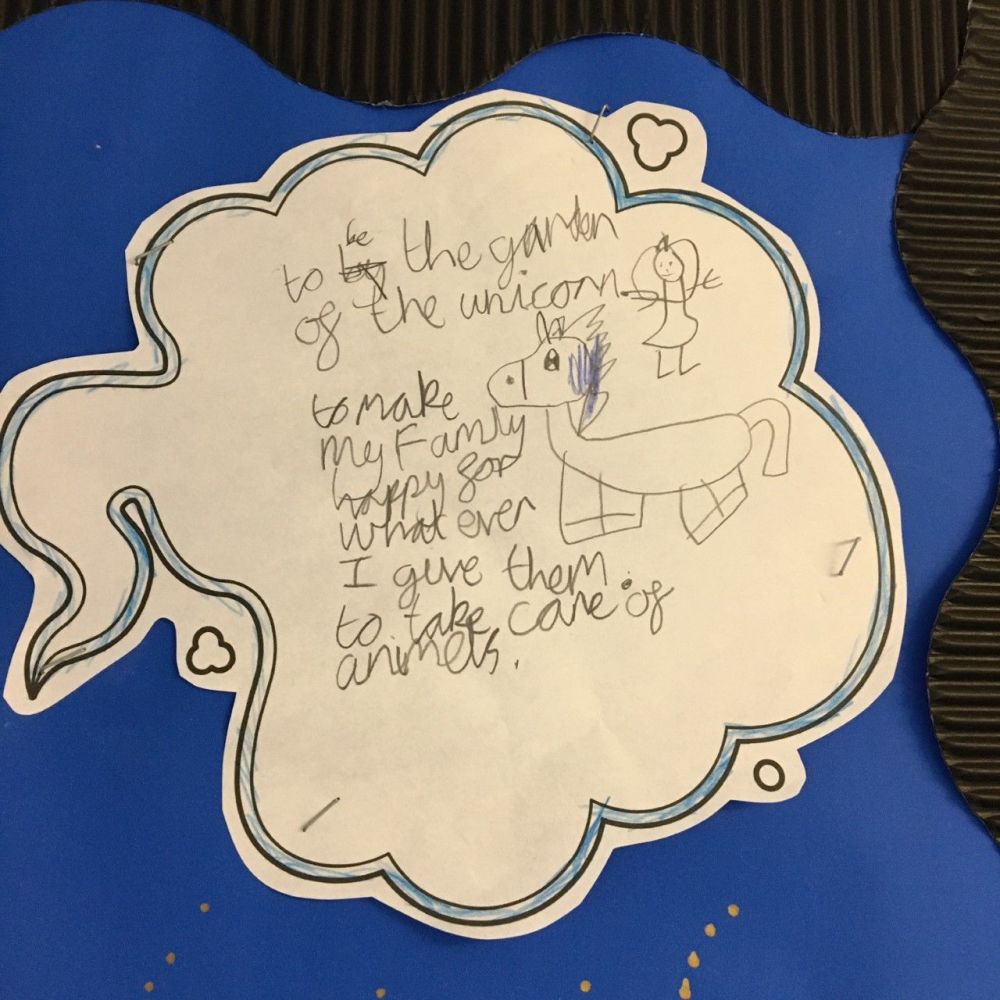 to be the garden
of the unicorn
to make
my Family
happy for
what ever
I give them.
to take care of
animels.